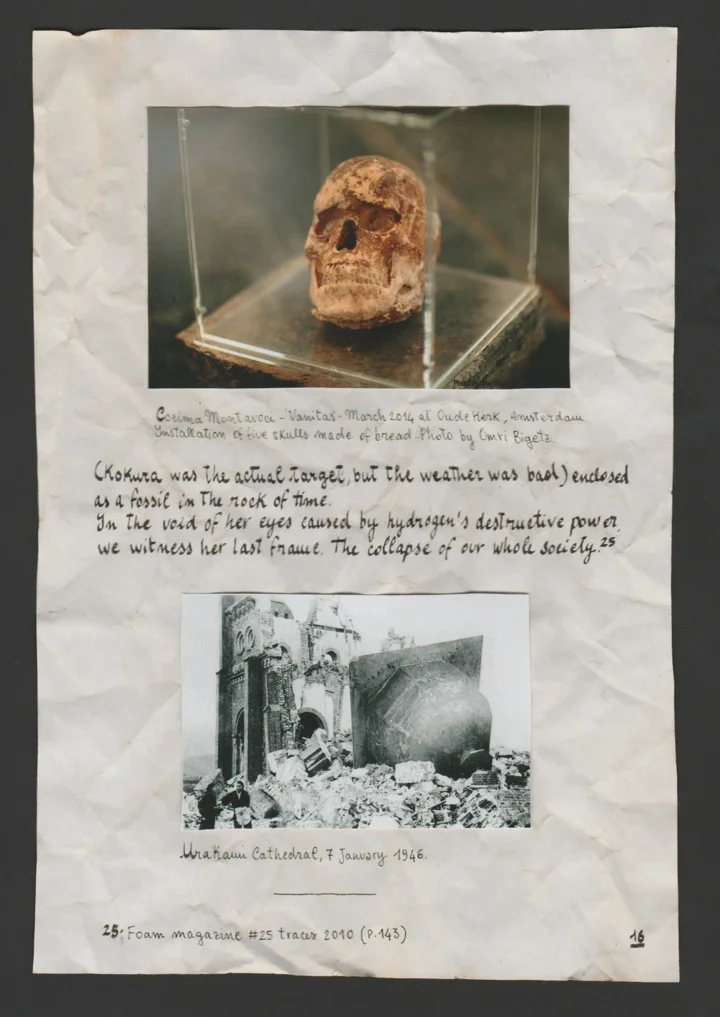 Cosima Montavoci - 'Vanitas' - March 2014 at Oude Kerk, Amsterdam
Installation of five skulls made of bread. Photo by Omri Bigetz.
(Kokura was the actual target, but the weather was bad) enclosed
as a fossil in the rock of time.
In the void of her eyes caused by hydrogen's destructive power,
we witness her last frame. The collapse of our whole society.25
Urakami Cathedral, 7 January 1946.
25: Foam magazine #25 traces 2010 (P.143)
16